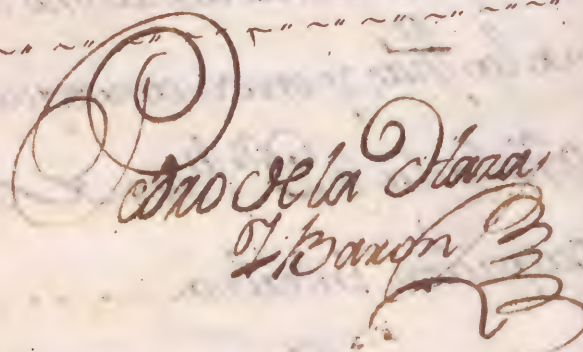 Pedro de la Haza,
Y Baron